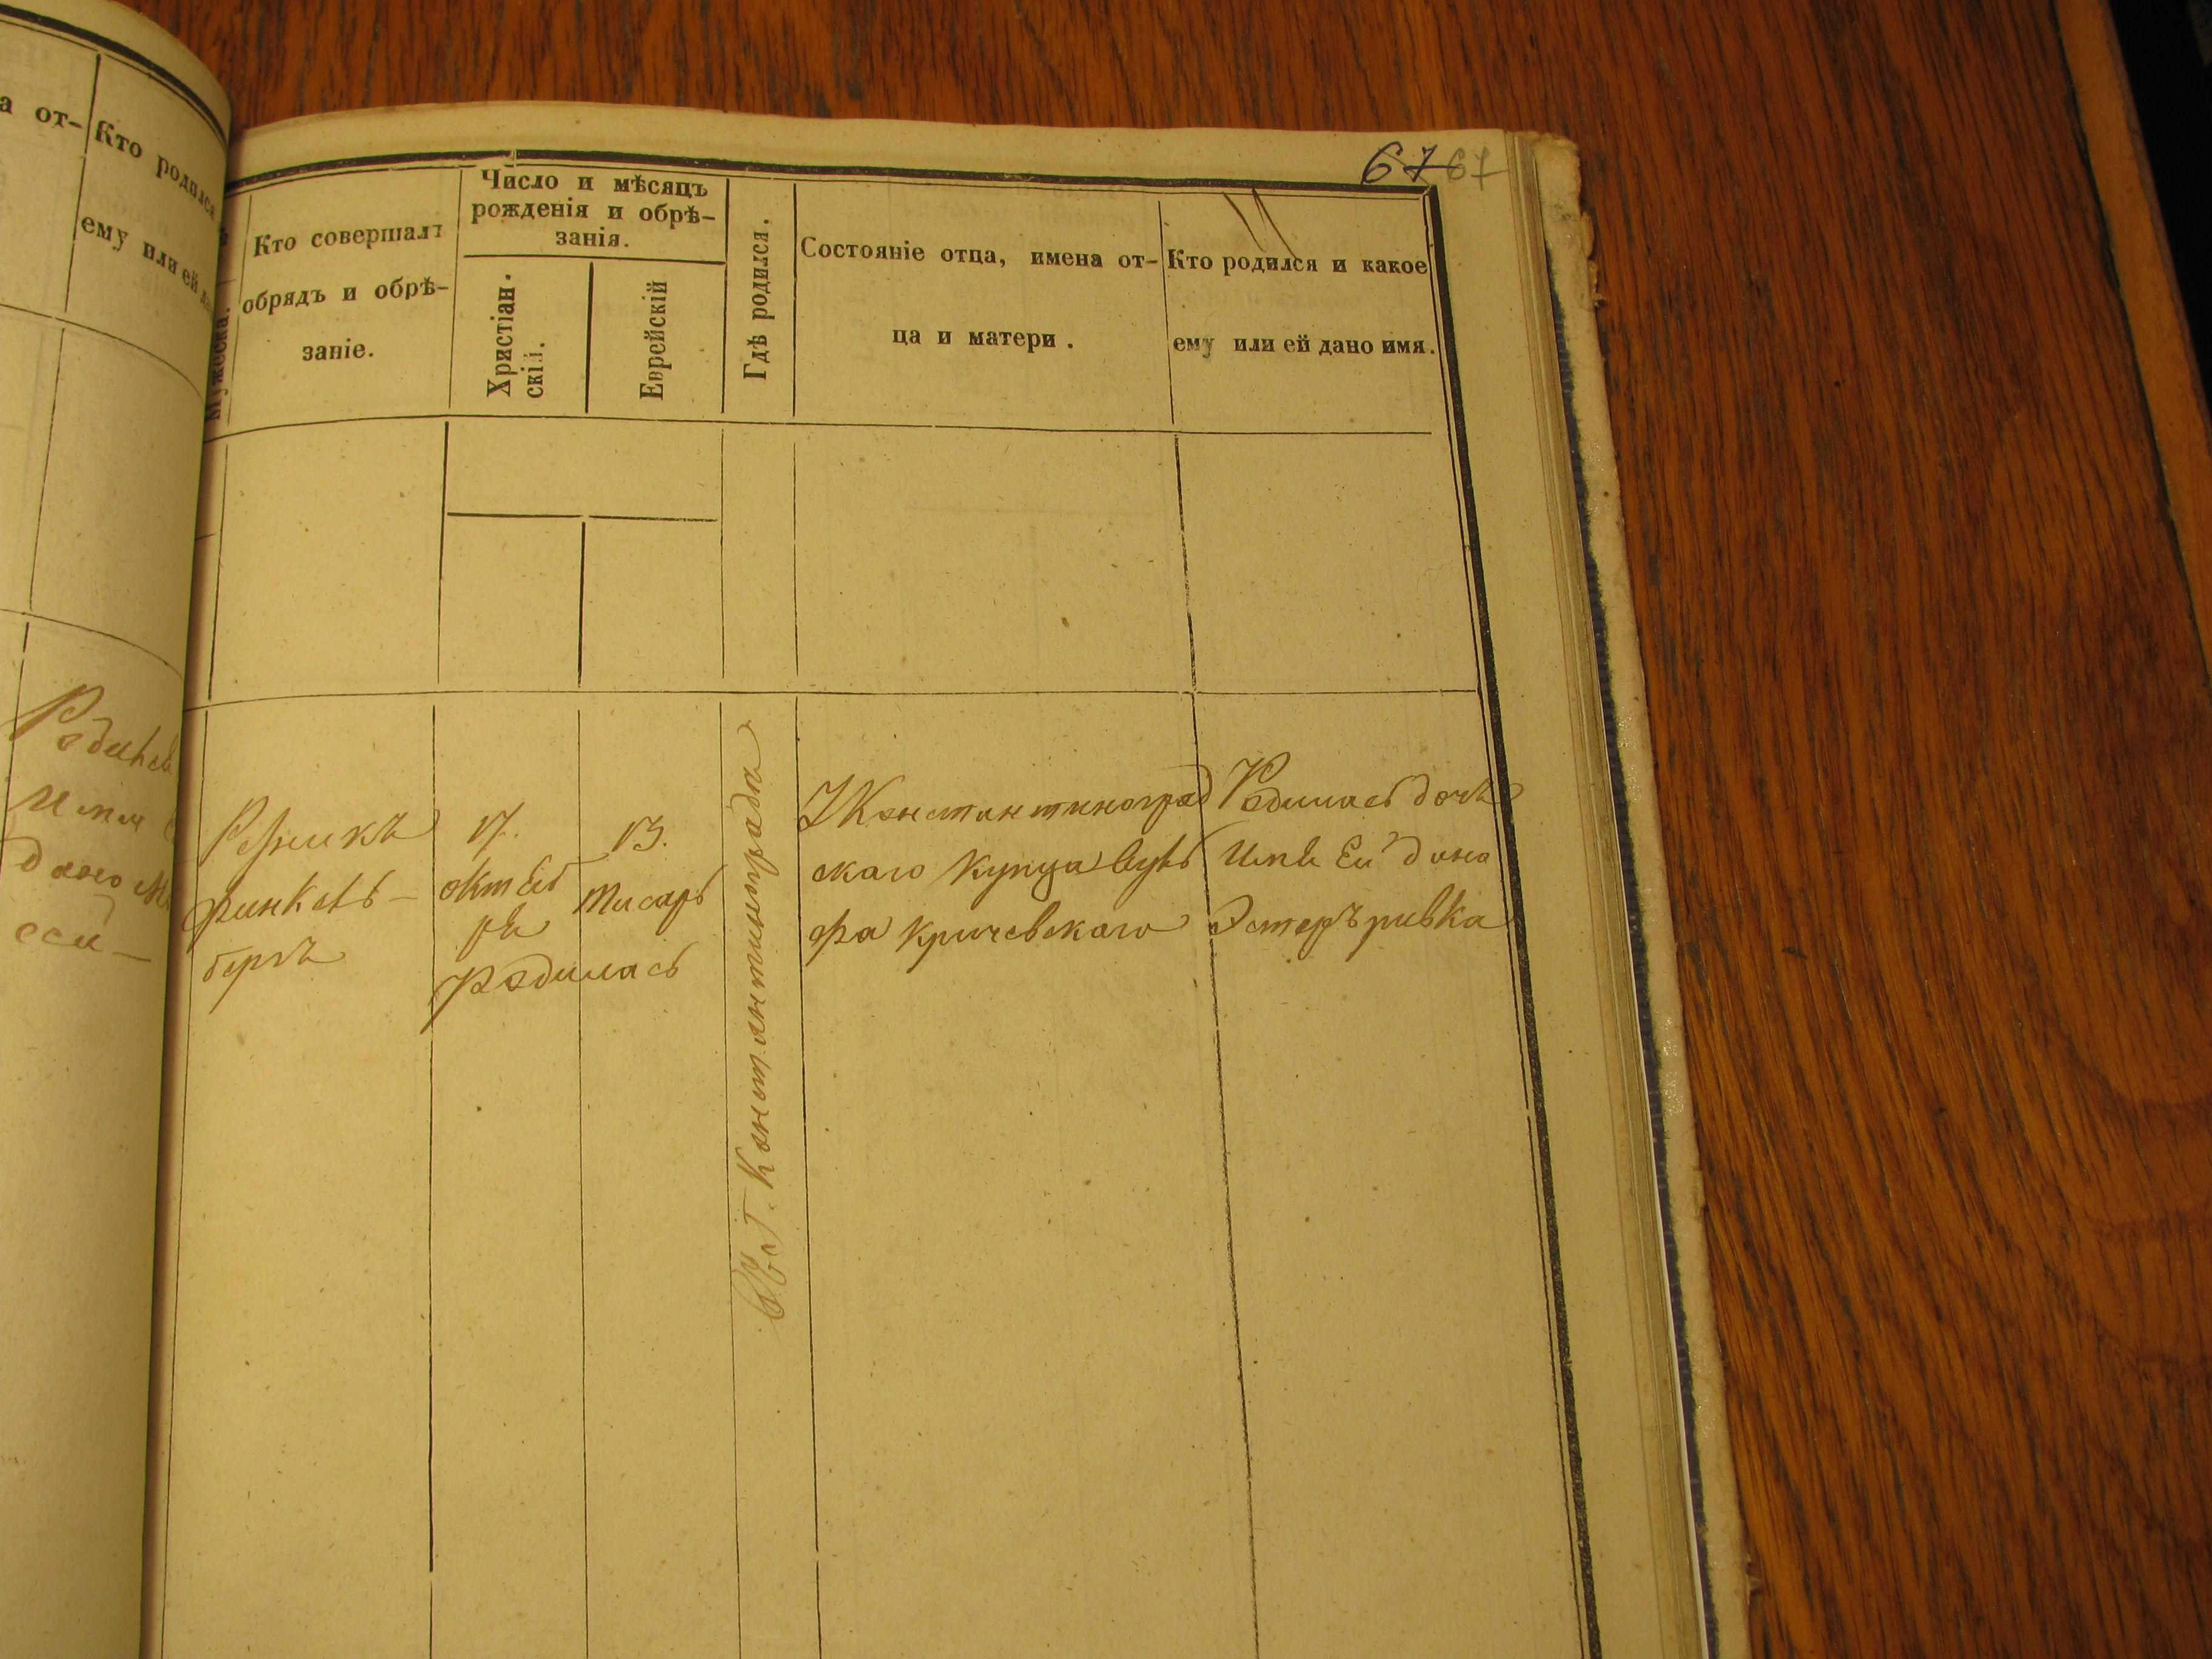 а от-
Кто родился
ему или ей
Родился
Имя
дано
67 67
Мужеска.
Кто совершалъ
обрядъ и обрѣ-
заніе.
Число и мѣсяцъ
рожденія и обрѣ-
занія.
Христіан-
скій.
Еврейскій
Гдѣ родился.
Состояніе отца, имена от-
ца и матери.
Кто родился и какое
ему или ей дано имя.
Резникъ
Финкель-
бергъ
17.
октяб
ря
13.
тисаръ
родилась
Въ г. Константинограда
У Константиноград
скаго купца
фа Кричевскаго
Родилась дочь
Имя Ей дано
Эстеръ ривка